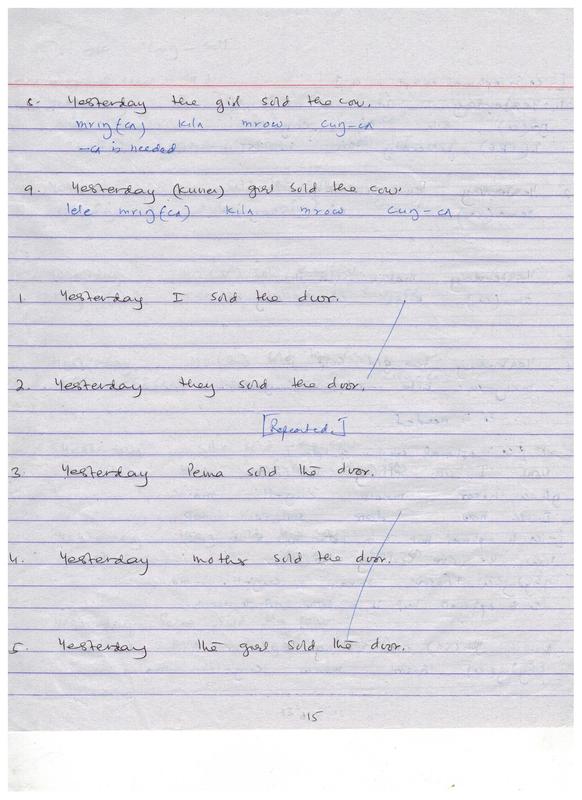 8. Yesterday the girl sold the cow.
mriŋ(ca) kila mrow cuŋ-ca
-ca is needed
9. Yesterday (kuner) girl sold the cow.
lele mriŋ(ca) kila mrow cuŋ-ca
1. Yesterday I sold the door.
2. Yesterday they sold the door.
[Repeated.]
3. Yesterday Pema sold the door.
4. Yesterday mother sold the door.
5. Yesterday the girl sold the door.
15